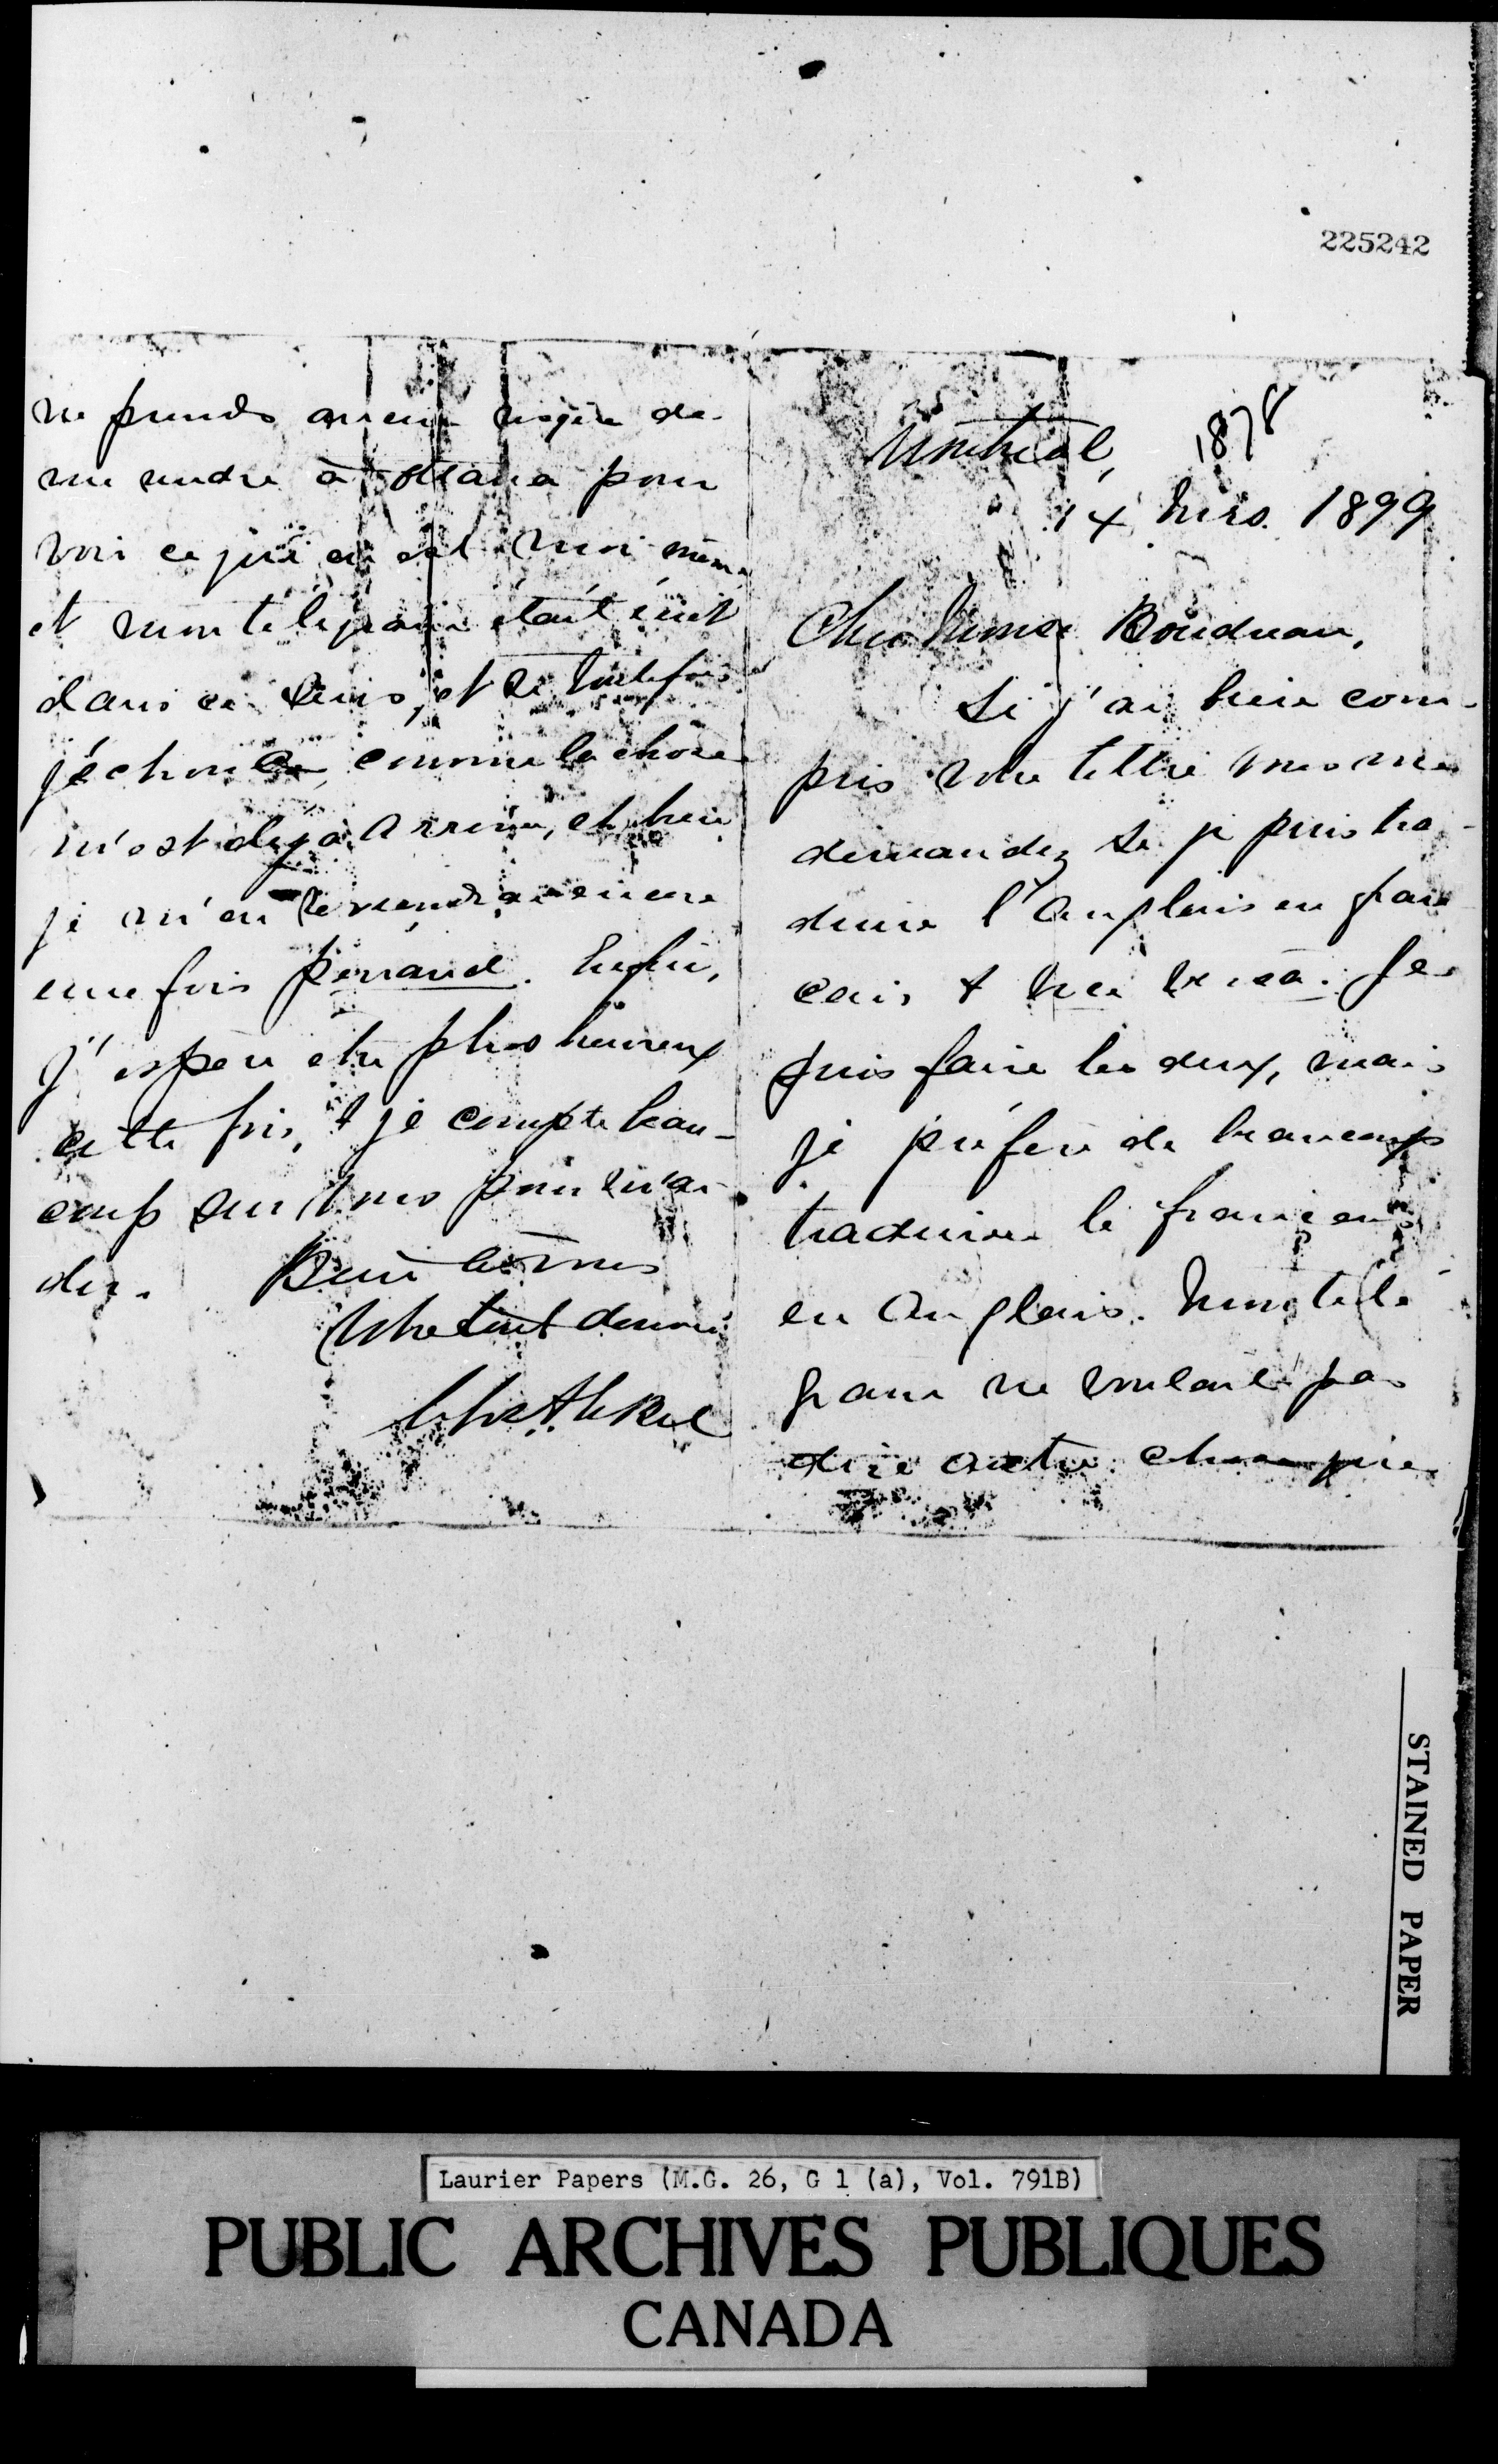 225242
1878
Montréal,
14 Nvro. 1899
Cher Monsr Boudreau,
Si j'ai bien com-
pris votre lettre vous me
demandez si je puis tra-
duire l'Anglais en fran
cais & vice versa. Je
puis faire les deux, mais
je préfère de beaucoup
traduire le français
en Anglais. Mon télé
gramme ne voulait pas
dire autre chose que
me rendre à Ottawa pour
voir ce qui en est moi même
et mon télégramme était écrit
dans ce sens, et si toutefois
j'échoue, comme la chose
m'est déjà arrivée, eh bien
je m'en reviendrai encore
une fois penaud. Enfin,
j'espère être plus heureux
cette fois, & je compte beau-
coup sur vous pour m'ai-
der. Bien à vous
Votre tout dévoué
STAINED PAPER
Laurier Papers (M.G. 26, G 1 (a), Vol. 791B)
PUBLIC ARCHIVES PUBLIQUES
CANADA